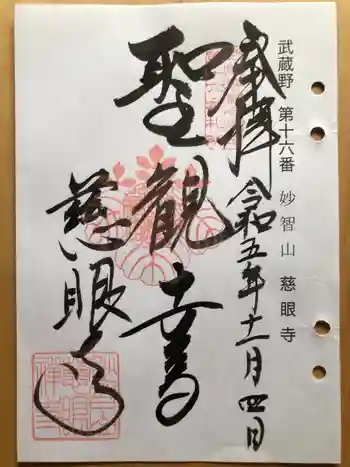 武蔵野 第十六番 妙智山 慈眼寺
奉拝
令和五年十一月四日
聖観音
慈眼寺